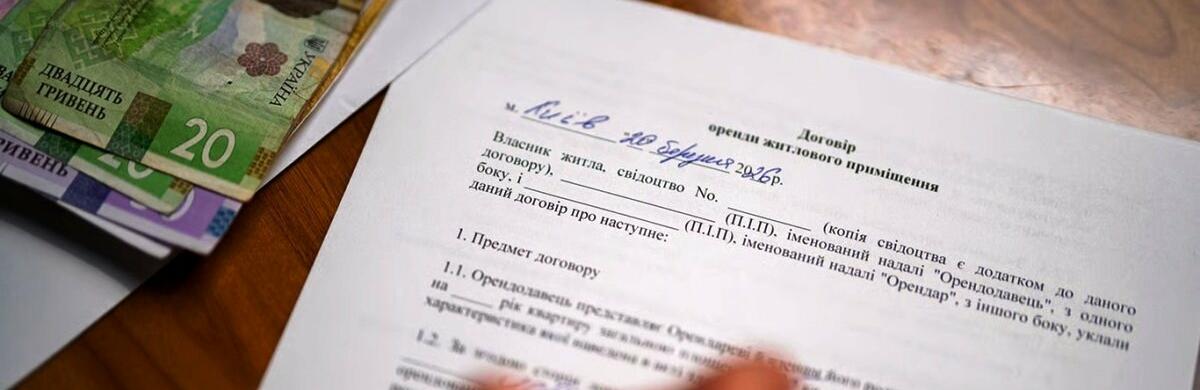 ДВАДЦЯТЬ
ГРИВЕНЬ
20
УКРАЇНА
ГРИВЕНЬ
Договір
оренди житлового приміщення
м. Київ 20 березня 2026р.
Власник житла, свідоцтво No. __________ (копія свідоцтва є додатком до даного
договору), ____________________ (П.І.П), іменований надалі "Орендодавець", з одного
боку, і ____________________ (П.І.П), іменований надалі "Орендар", з іншого боку, уклали
даний договір про наступне:
1. Предмет договору
1.1. Орендодавець представляє Орендареві
на _____ рік квартиру загальною
характеристика якої наведена в
1.2. За згодою сторін